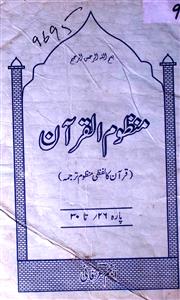 بسم اللہ الرحمن الرحیم
منظوم القرآن
(قرآن کا لفظی منظوم ترجمہ)
پارہ ۲۶ تا ۳۰